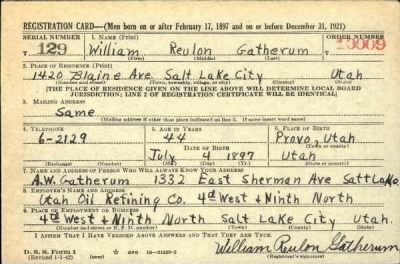 REGISTRATION CARD—(Men born on or after February 17, 1897 and on or before December 31, 1921)
SERIAL NUMBER 1. NAME (Print) ORDER NUMBER
T 129 William Reulon Gatherum 10009
(First) (Middle) (Last)
2. PLACE OF RESIDENCE (Print)
1420 Blaine Ave. Salt Lake City Utah
(Number and street) (Town, township, village, or city) (County) (State)
[THE PLACE OF RESIDENCE GIVEN ON THE LINE ABOVE WILL DETERMINE LOCAL BOARD
JURISDICTION; LINE 2 OF REGISTRATION CERTIFICATE WILL BE IDENTICAL]
3. MAILING ADDRESS
Same
[Mailing address if other than place indicated on line 2. If same insert word same]
4. TELEPHONE 5. AGE IN YEARS 6. PLACE OF BIRTH
6-2129 44 Provo, Utah
DATE OF BIRTH (Town or county)
July 4 1897 Utah
(Exchange) (Number) (Mo.) (Day) (Yr.) (State or country)
7. NAME AND ADDRESS OF PERSON WHO WILL ALWAYS KNOW YOUR ADDRESS
A.W. Gatherum 1332 East Sherman Ave Salt Lake
8. EMPLOYER'S NAME AND ADDRESS
Utah Oil Refining Co. 4th West & Ninth North
9. PLACE OF EMPLOYMENT OR BUSINESS
4th West & Ninth North Salt Lake City Utah.
(Number and street or R. F. D. number) (Town) (County) (State)
I AFFIRM THAT I HAVE VERIFIED ABOVE ANSWERS AND THAT THEY ARE TRUE.
D. S. S. Form 1
(Revised 1-1-42) (over) GPO 16-21630-2
William Reulon Gatherum
(Registrant's signature)